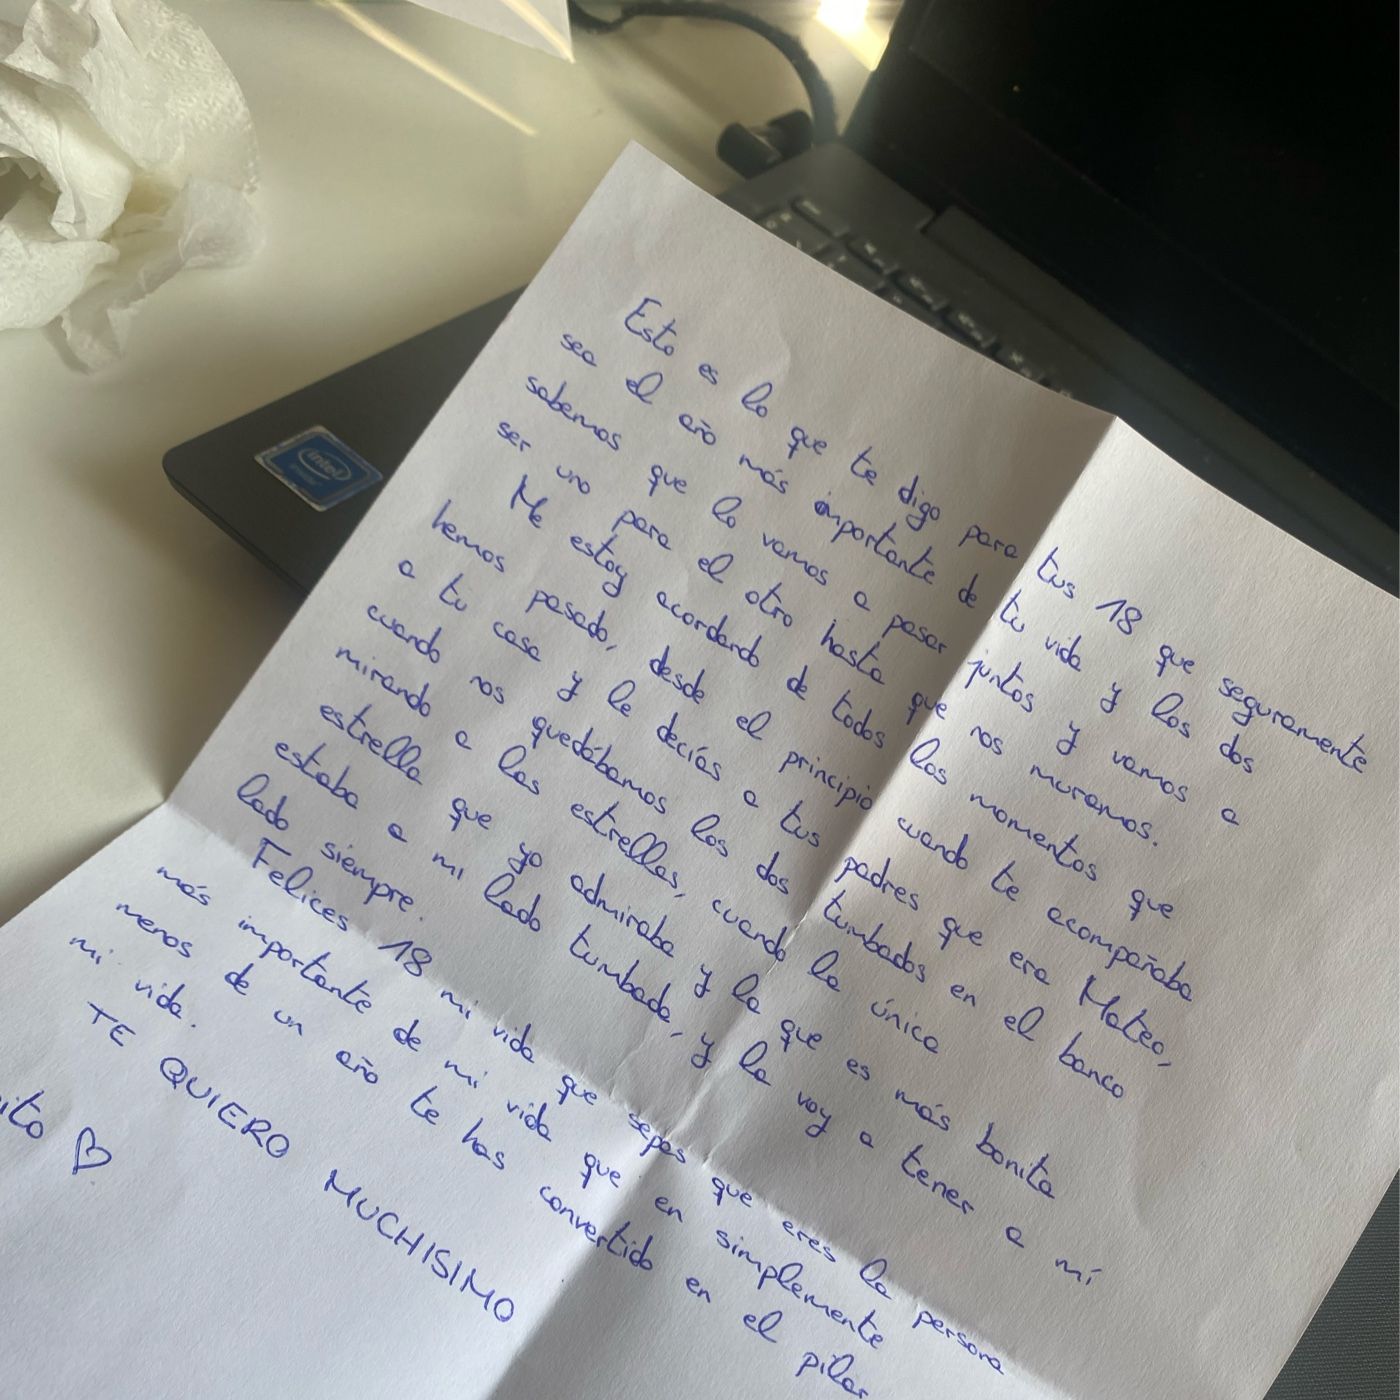 Esto es lo que te digo para tus 18 que seguramente
sea el año más importante de tu vida y los dos
sabemos que lo vamos a pasar juntos y vamos a
ser uno para el otro hasta que nos muramos.
Me estoy acordando de todos los momentos que
hemos pasado, desde el principio cuando te acompañaba
a tu casa y le decías a tus padres que era Mateo,
cuando nos quedábamos los dos tumbados en el banco
mirando a las estrellas, cuando la única
estrella que yo admiraba y la que es más bonita
estaba a mi lado tumbada, y la voy a tener a mí
lado siempre.
Felices 18 mi vida que sepas que eres la persona
más importante de mi vida que en simplemente
menos de un año te has convertido en el pilar
mi vida.
TE QUIERO MUCHISIMO
ito ♡
intel